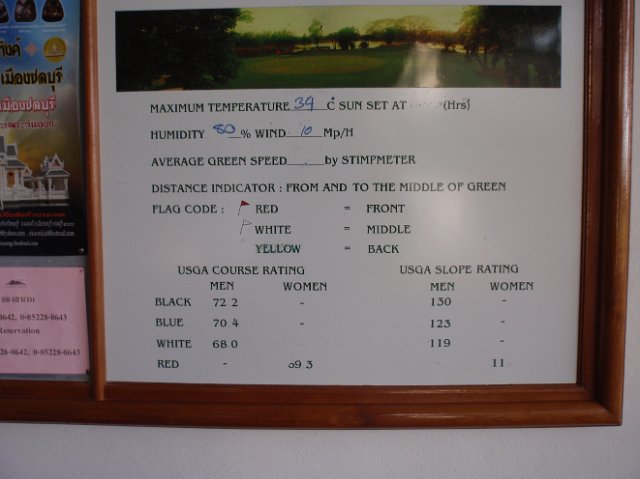 เมืองชลบุรี
MAXIMUM TEMPERATURE 34 C SUN SET AT (Hrs)
HUMIDITY 80 % WIND 10 Mp/H
AVERAGE GREEN SPEED by STIMPMETER
DISTANCE INDICATOR : FROM AND TO THE MIDDLE OF GREEN
FLAG CODE : RED = FRONT
WHITE = MIDDLE
YELLOW = BACK
USGA COURSE RATING USGA SLOPE RATING
MEN WOMEN MEN WOMEN
BLACK 72 2 - 130 -
BLUE 70.4 - 123 -
WHITE 68 0 - 119 -
RED - 69 3 - 11
0642, 0-85228-0643
Reservation
28-0642, 0-85228-0643